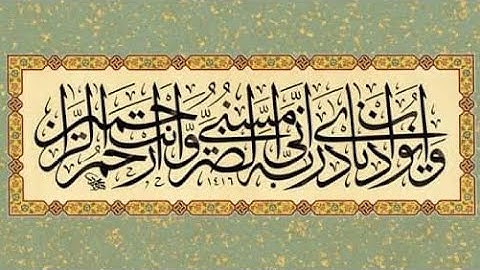 وَأَيُّوبَ إِذْ نَادَىٰ رَبَّهُ أَنِّي مَسَّنِيَ الضُّرُّ وَأَنْتَ أَرْحَمُ الرَّاحِمِينَ
١٤١٦